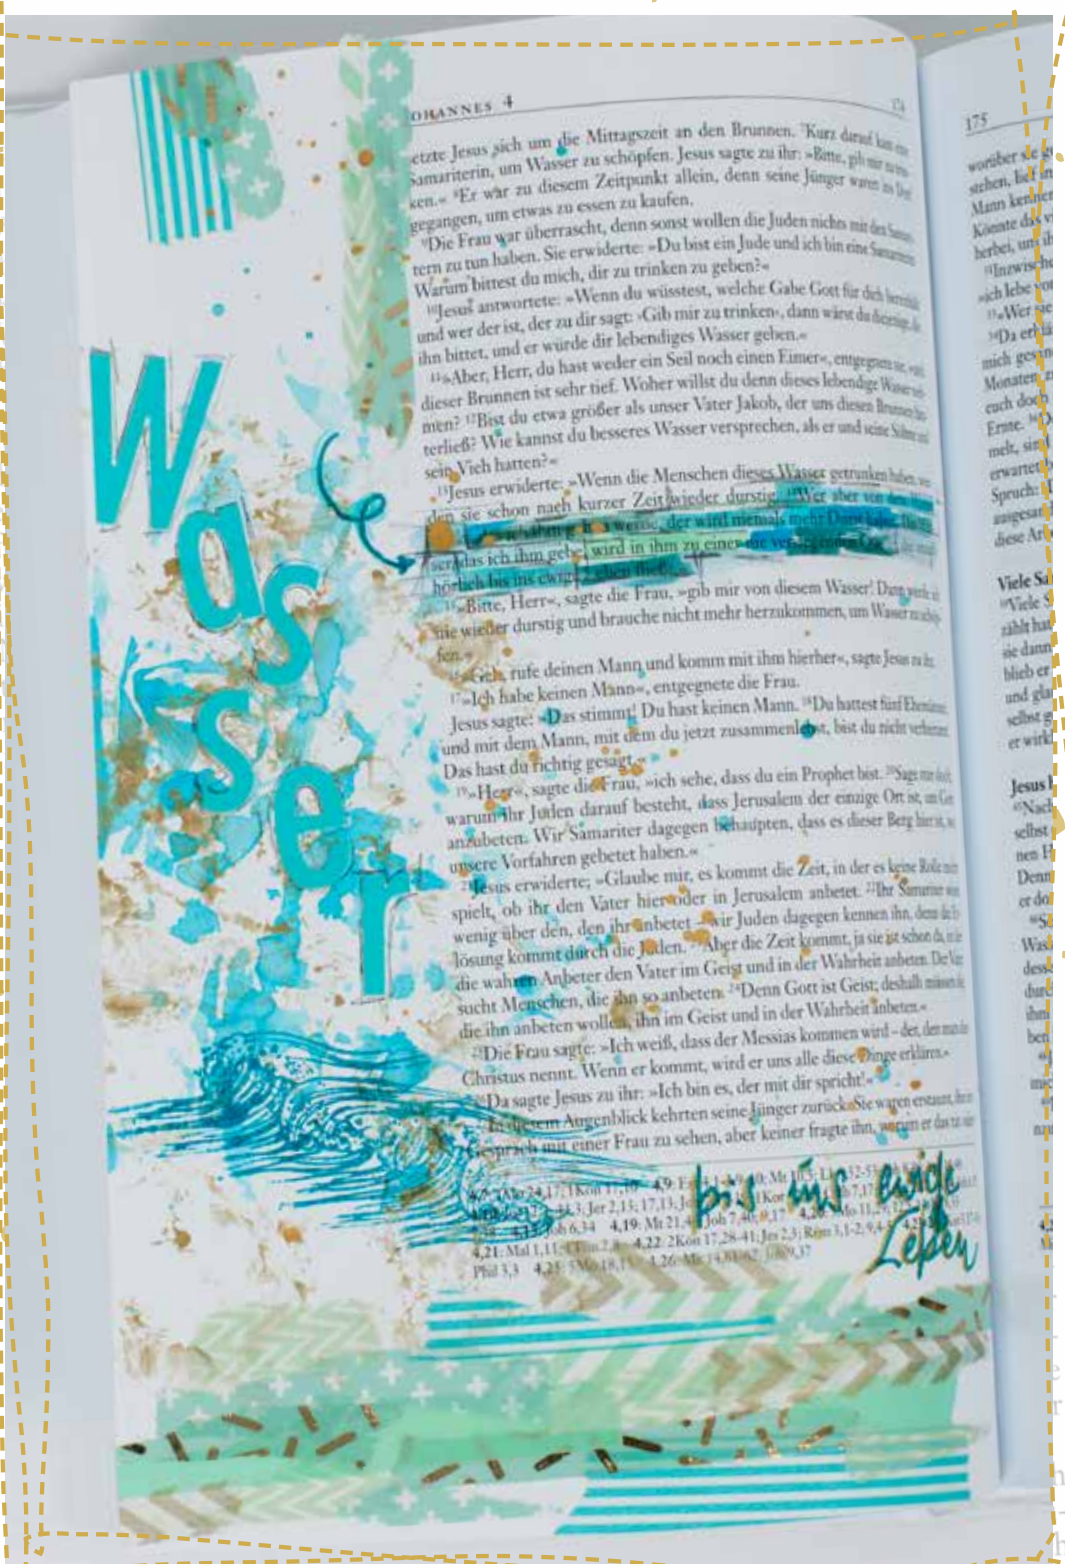 OHANNES 4
etzte Jesus sich um die Mittagszeit an den Brunnen. 7Kurz darauf kam
Samariterin, um Wasser zu schöpfen. Jesus sagte zu ihr: »Bitte, gib mir zu
ken.« 8Er war zu diesem Zeitpunkt allein, denn seine Jünger waren ins Dorf
gegangen, um etwas zu essen zu kaufen.
9Die Frau war überrascht, denn sonst wollen die Juden nichts mit den
tern zu tun haben. Sie erwiderte: »Du bist ein Jude und ich bin eine
Warum bittest du mich, dir zu trinken zu geben?«
10Jesus antwortete: »Wenn du wüsstest, welche Gabe Gott für dich
und wer der ist, der zu dir sagt: ›Gib mir zu trinken‹, dann wärst du
ihn bittet, und er würde dir lebendiges Wasser geben.«
11»Aber, Herr, du hast weder ein Seil noch einen Eimer«, entgegnete
dieser Brunnen ist sehr tief. Woher willst du denn dieses lebendige Wasser
men? 12Bist du etwa größer als unser Vater Jakob, der uns diesen Brunnen
terließ? Wie kannst du besseres Wasser versprechen, als er und seine Söhne und
sein Vieh hatten?«
13Jesus erwiderte: »Wenn die Menschen dieses Wasser getrunken haben,
den sie schon nach kurzer Zeit wieder durstig. 14Wer aber von dem
werde, der wird niemals mehr Durst
ser, das ich ihm gebe, wird in ihm zu einer nie versiegenden
hörlich bis ins ewige Leben fließt.«
15»Bitte, Herr«, sagte die Frau, »gib mir von diesem Wasser! Dann
nie wieder durstig und brauche nicht mehr herzukommen, um Wasser
fen.«
16»Geh, rufe deinen Mann und komm mit ihm hierher«, sagte Jesus zu ihr.
17»Ich habe keinen Mann«, entgegnete die Frau.
Jesus sagte: »Das stimmt! Du hast keinen Mann. 18Du hattest fünf
und mit dem Mann, mit dem du jetzt zusammenlebst, bist du nicht verheiratet.
Das hast du richtig gesagt.«
19»Herr«, sagte die Frau, »ich sehe, dass du ein Prophet bist. 20Sage mir
warum ihr Juden darauf besteht, dass Jerusalem der einzige Ort ist, um
anzubeten. Wir Samariter dagegen behaupten, dass es dieser Berg hier ist,
unsere Vorfahren gebetet haben.«
21Jesus erwiderte: »Glaube mir, es kommt die Zeit, in der es keine Rolle
spielt, ob ihr den Vater hier oder in Jerusalem anbetet. 22Ihr Samariter
wenig über den, den ihr anbetet – wir Juden dagegen kennen ihn, denn die
lösung kommt durch die Juden. 23Aber die Zeit kommt, ja sie ist schon da,
die wahren Anbeter den Vater im Geist und in der Wahrheit anbeten. Der
sucht Menschen, die ihn so anbeten. 24Denn Gott ist Geist; deshalb müssen
die ihn anbeten wollen, ihn im Geist und in der Wahrheit anbeten.«
25Die Frau sagte: »Ich weiß, dass der Messias kommen wird – der, den man
Christus nennt. Wenn er kommt, wird er uns alle diese Dinge erklären.«
26Da sagte Jesus zu ihr: »Ich bin es, der mit dir spricht!«
In diesem Augenblick kehrten seine Jünger zurück. Sie waren erstaunt, ihn
Gespräch mit einer Frau zu sehen, aber keiner fragte ihn, warum er das
Joh 6,34 4,19: Mt 21, Joh 7,40; 9,17
4,21: Mal 1,11; 4,22: 2Kön 17,28-41; Jes 2,3; Röm 3,1-2; 9,4
Phil 3,3 4,25: 5Mo 18,15 4,26:
Wasser
bis ins ewige
Leben
175
worüber sie
stehen, ließ
Mann kennen
Könnte das
herbei, um
Inzwische
»ich lebe
»Wer
Da erklä
mich
Monaten
euch doch
Ernte.
erwartet
Spruch:
diese
Viele Sa
Viele
zählt hat
sie dann
blieb er
und gla
selbst
er wirkl
Jesus
Nach
selbst
nen
Denn
er do
Was